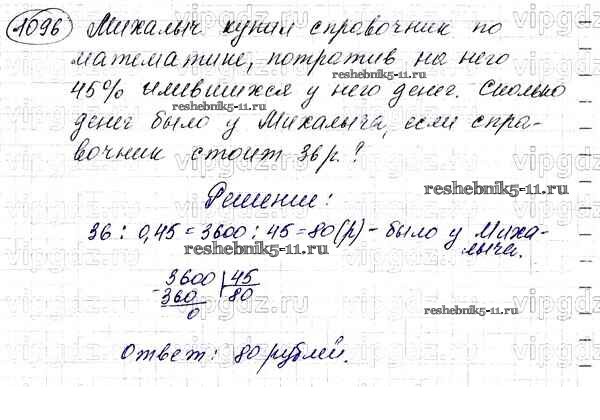 1096 Михалыч купил справочник по
математике, потратив на него
45% имевшихся у него денег. Сколько
денег было у Михалыча, если спра-
вочник стоит 36 р.?
Решение:
36 : 0,45 = 3600 : 45 = 80 (р) - было у Миха-
лыча.
3600 | 45
- 360 | 80
0
Ответ: 80 рублей.
reshebnik5-11.ru
reshebnik5-11.ru
reshebnik5-11.ru
reshebnik5-11.ru
reshebnik5-11.ru
vipgdz.ru